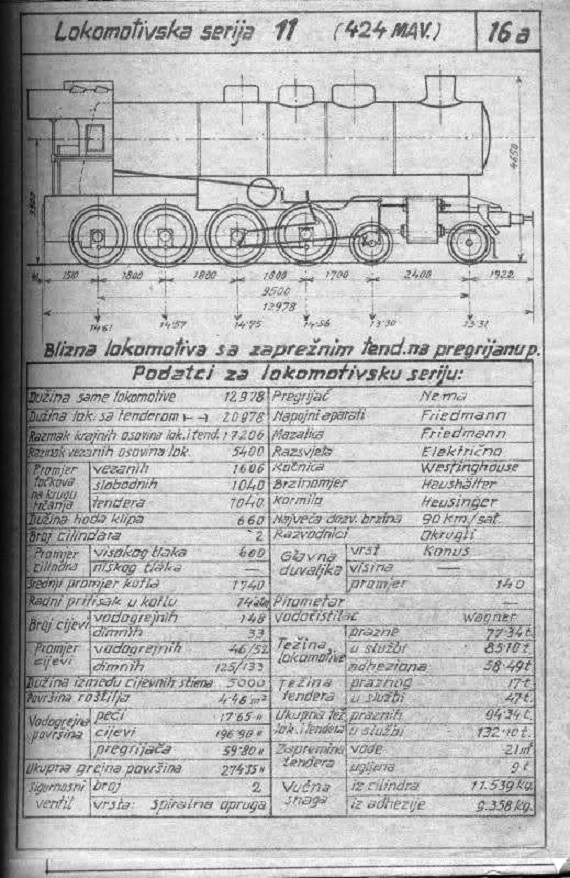 Lokomotivska serija 11 (424 MAV.) 16a
4650
1510 1800 1800 1800 1700 2400 1922
9500
12978
14·61 14·57 14·75 14·56 13·30 13·31
Blizna lokomotiva sa zaprežnim tend. na pregrijanu p.
Podatci za lokomotivsku seriju:
Dužina same lokomotive 12978 Pregrijač Nema
Dužina lok. sa tenderom 20978 Napojni aparati Friedmann
Razmak krajnih osovina lok. i tend. 17206 Mazalka Friedmann
Razmak vezanih osovina lok. 5400 Razsvjeta Električno
Promjer točkova na krugu trčanja vezanih 1606 Kočnica Westinghouse
slobodnih 1040 Brzinomjer Haushälter
tendera 1040 Kormilo Heusinger
Dužina hoda klipa 660 Najveća dozv. brzina 90 km./sat.
Broj cilindara 2 Razvodnici Okrugli
Promjer cilindra visokog tlaka 600 Glavna duvaljka vrst Konus
niskog tlaka — visina —
Srednji promjer kotla 1740 promjer 140
Radni pritisak u kotlu Pirometar —
Broj cijevi vodogrejnih 148 Vodočistilac Wagner
dimnih 33 Težina lokomotive prazne 77·34 t.
Promjer cijevi vodogrejnih 46/52 u službi 85·10 t.
dimnih 125/133 adheziona 58·49 t
Dužina između cijevnih stiena 5000 Težina tendera praznog 17 t.
Površina roštilja 4·46 m² u službi 47 t.
Vodogrejna površina peći 17·65 " Ukupna tež. lok. i tendera praznih 94·34 t.
cijevi 196·90 " u službi 132·10 t.
pregrijača 59·80 " Zapremina tendera vode 21 m³
Ukupna grejna površina 274·35 " ugljena 9 t
Sigurnosni ventil broj 2 Vučna snaga iz cilindra 11.539 kg.
vrsta: Spiralna opruga iz adhezije 9.358 kg.